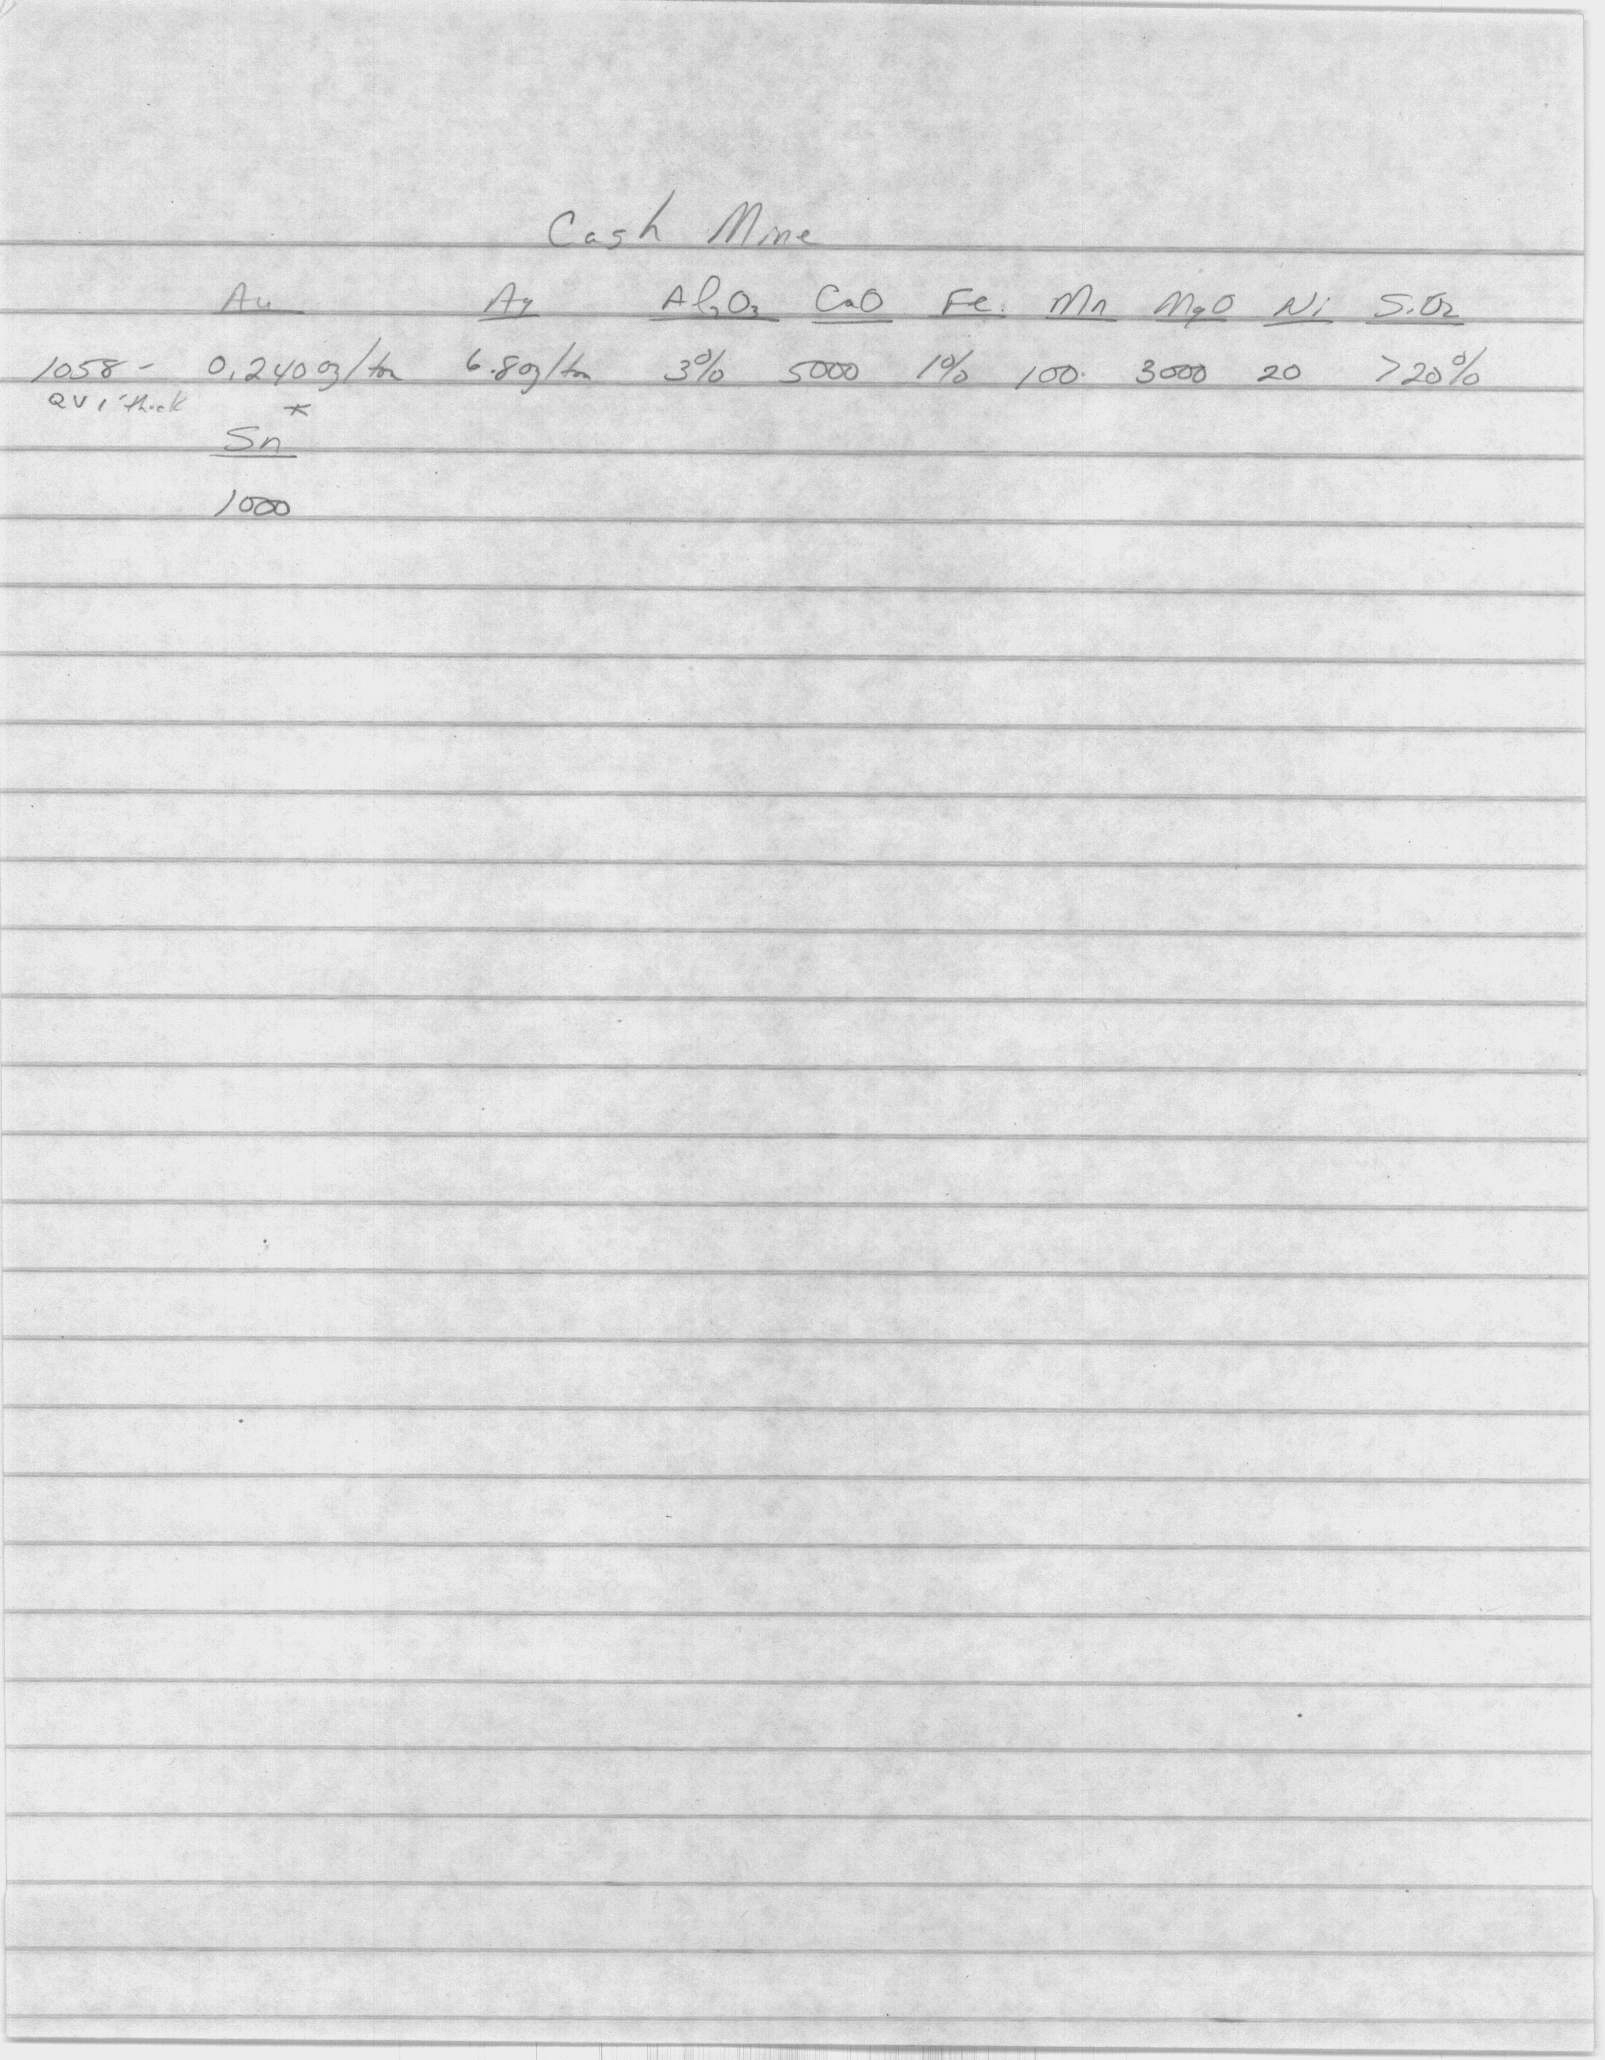 Cash Mine
Au Ag Al2O3 CaO Fe. Mn MgO Ni SiO2
1058 - 0.240 oz/ton 6.8 oz/ton 3% 5000 1% 100. 3000 20 >20%
QV 1' thick *
Sn
1000